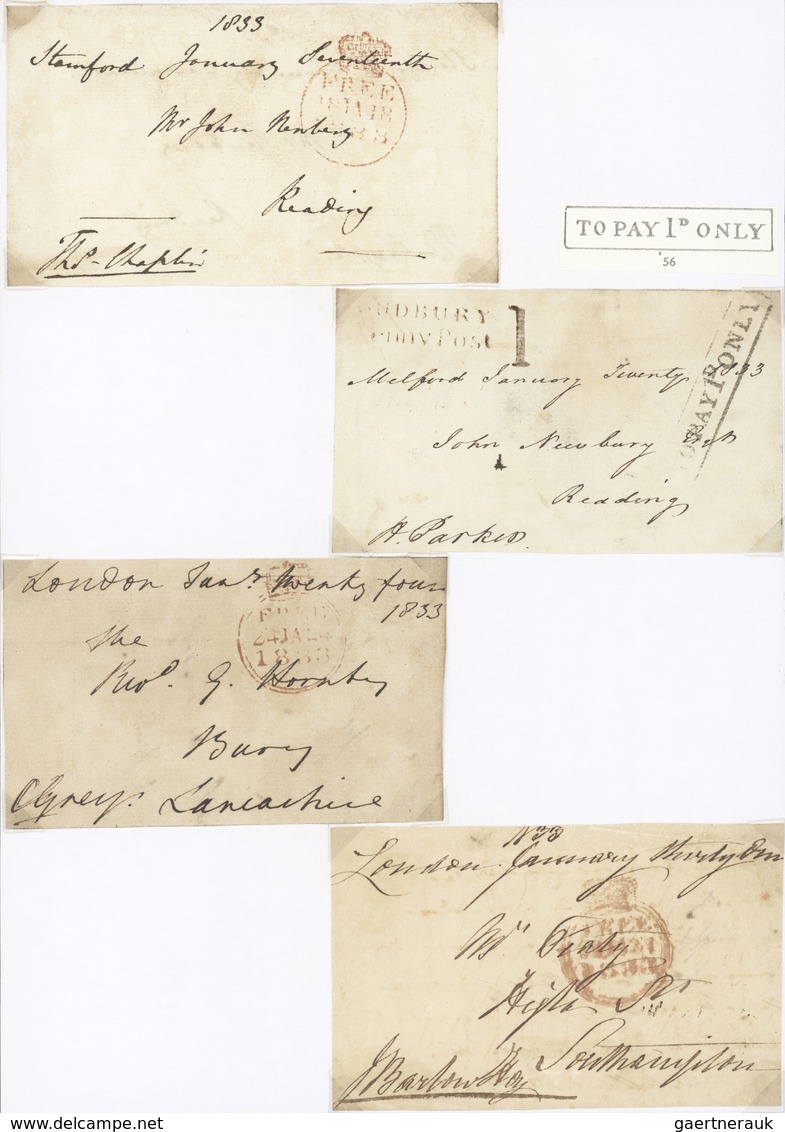 1833
Stamford January Seventeenth
FREE
18 JA 18
Mr John Newbery
Reading
Thos. Chaplin
TO PAY 1D ONLY
'56
UDBURY
enny Post
1
TO PAY 1D ONLY
Melford January Twenty 1833
John Newbury
Reading
H. Parker
London Jany. twenty four
1833
FREE
24 JA 24
1833
The
Revd. G. Hornby
Bury
CGrey. Lancashire
1833
London January thirty One
FREE
1833
Mr
High St
Southampton
JBarlow Hoy
gaertnerauk